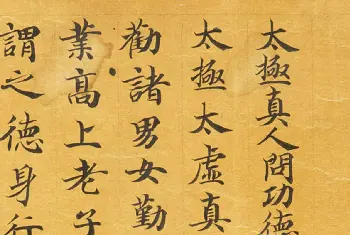 太極真人問功德
太極太虛真
勸諸男女勤
業高上老子
謂之德身行